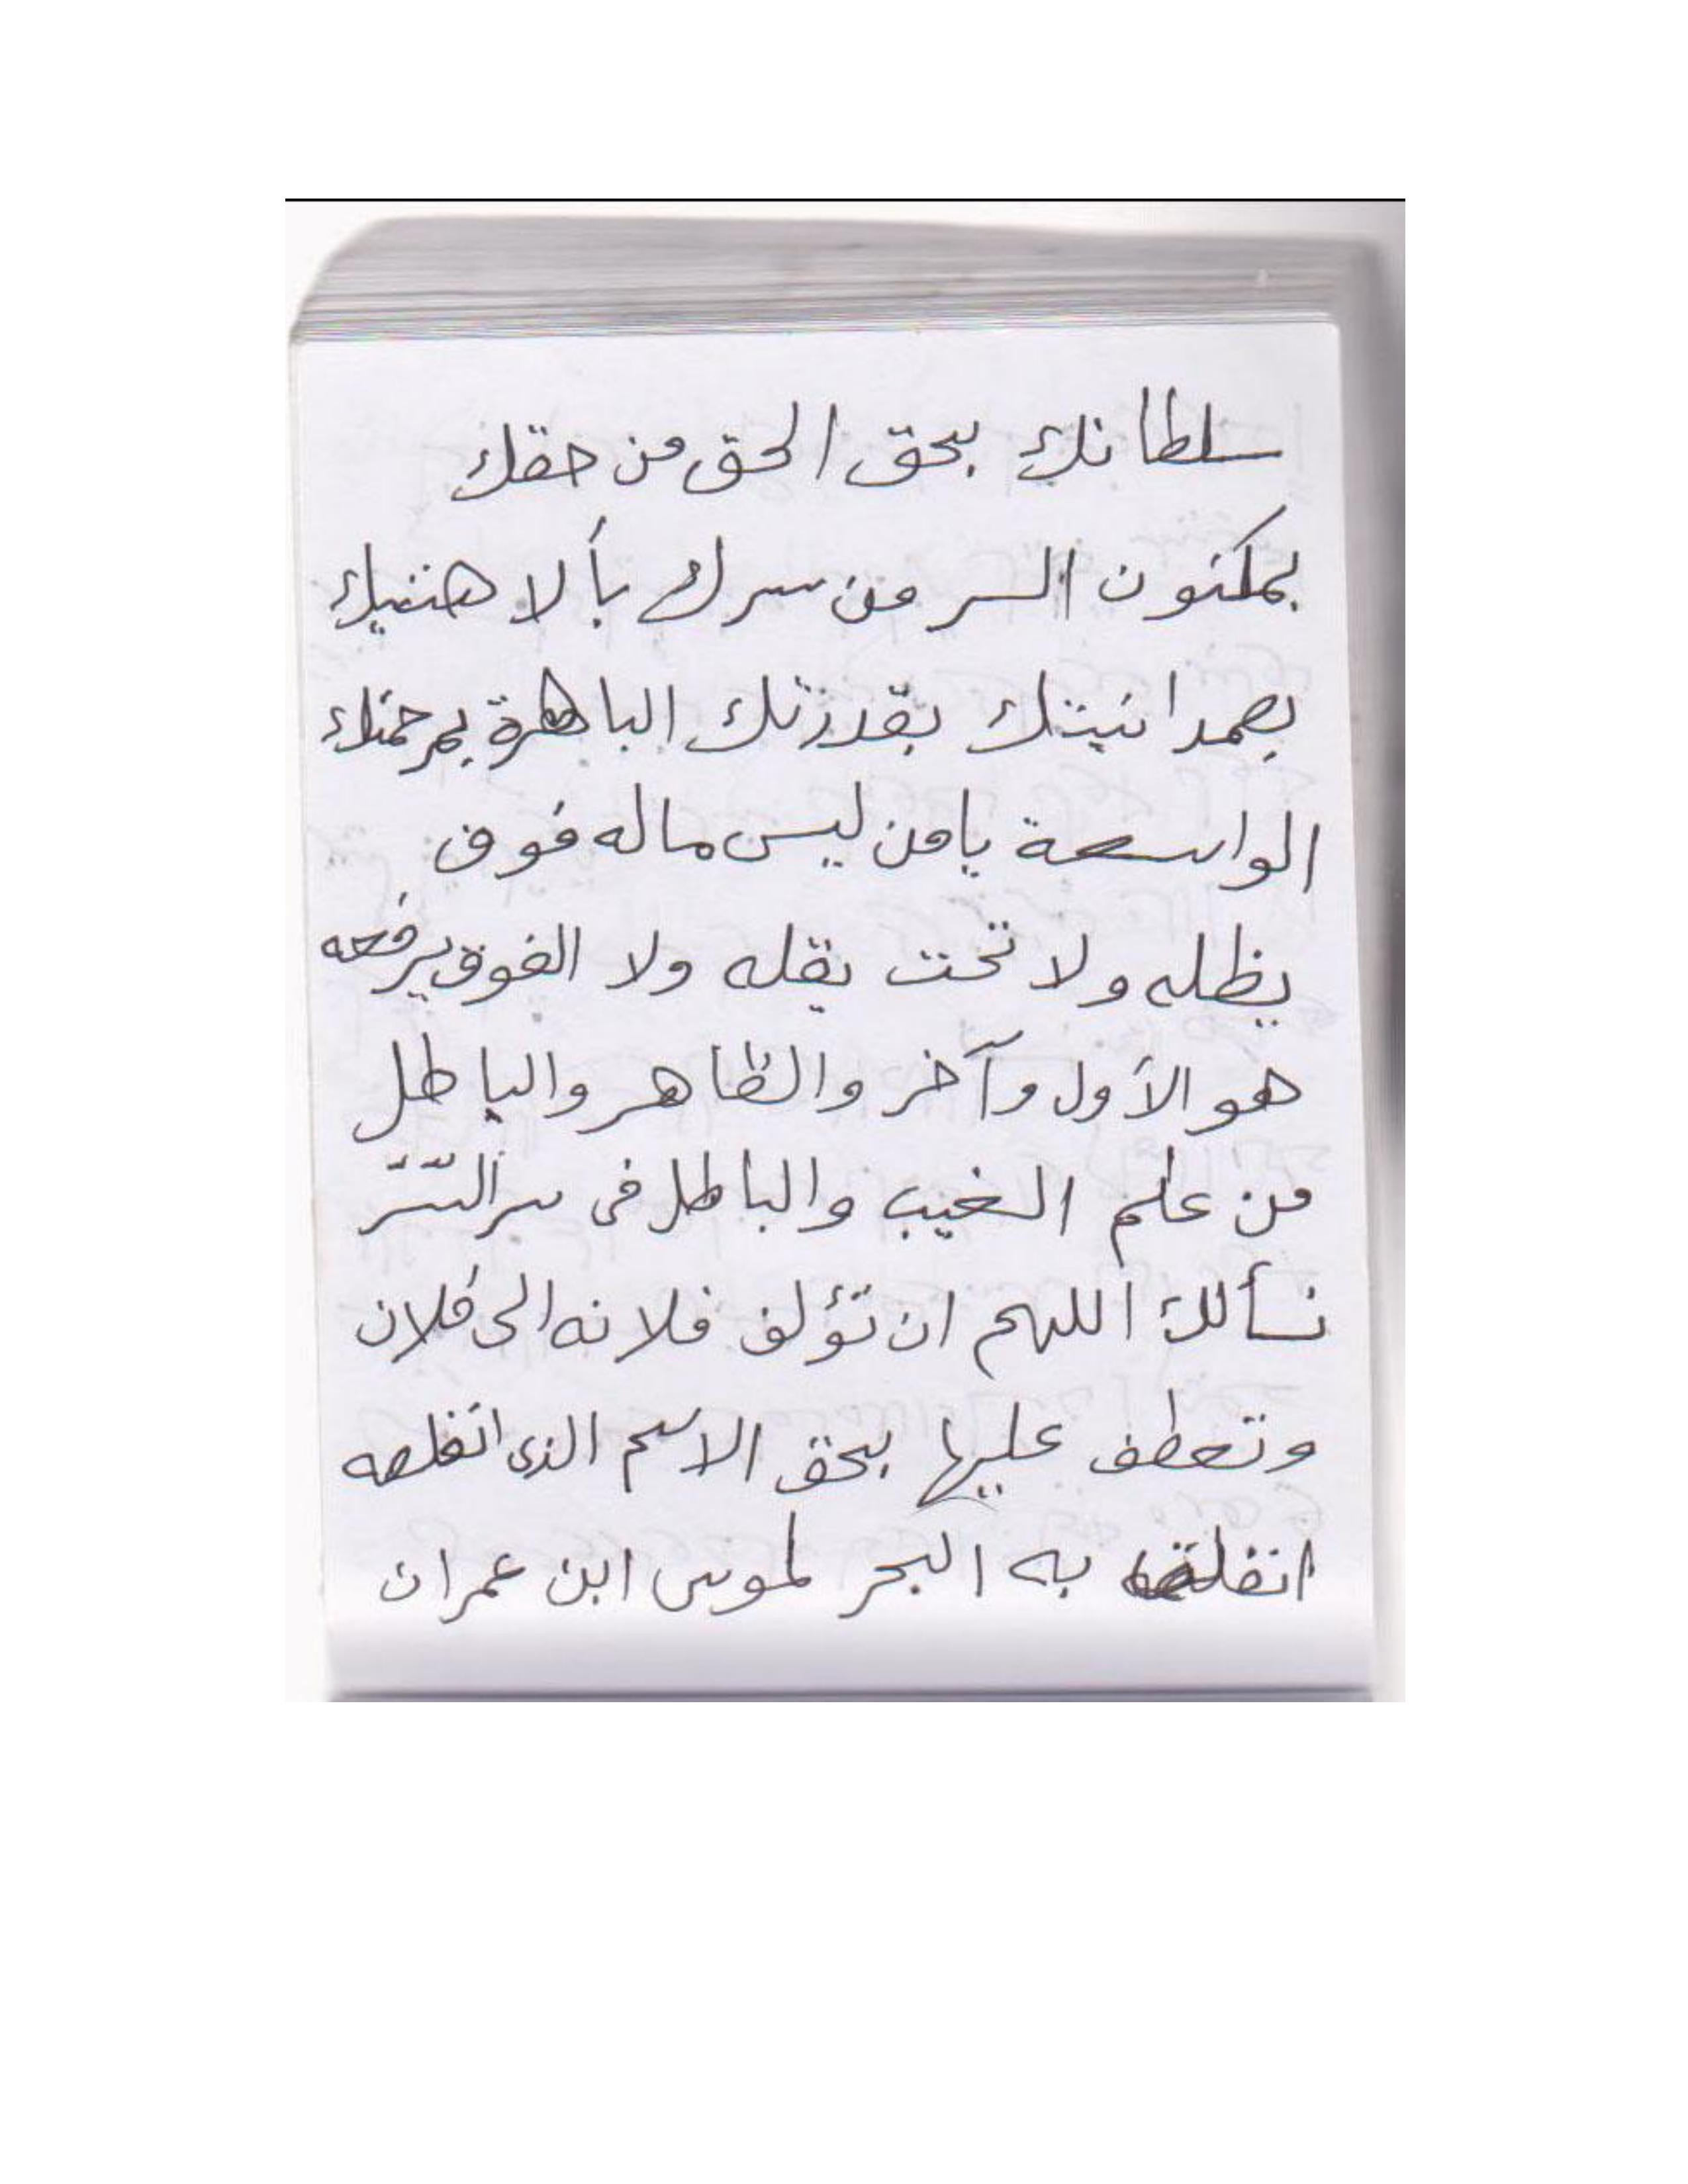 سلطانك بحق الحق من حقك
بمكنون السر من سرك بألا هنيتك
بصمدا نيتك بقدرتك الباهرة برحمتك
الواسعة يا من ليس ماله فوق
يظله ولا تحت يقله ولا الفوق يرفعه
هو الأول وآخر والظاهر والباطل
من علم الغيب والباطل فى سر
نسألك اللهم ان تؤلف فلانه الى فلان
وتعطف عليها بحق الاسم الذى
به البحر لموسى ابن عمران